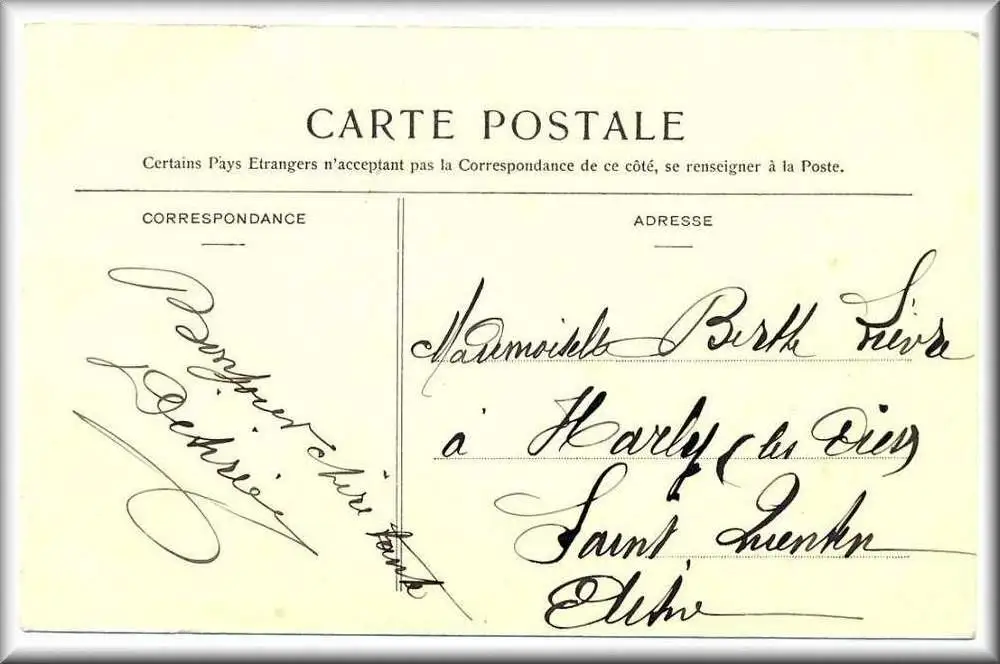 CARTE POSTALE
Certains Pays Etrangers n'acceptant pas la Correspondance de ce côté, se renseigner à la Poste.
CORRESPONDANCE
Bonjour chère tante
ADRESSE
Mademoiselle Berthe Lièvre
à Harly (les
Saint Quentin
Aisne